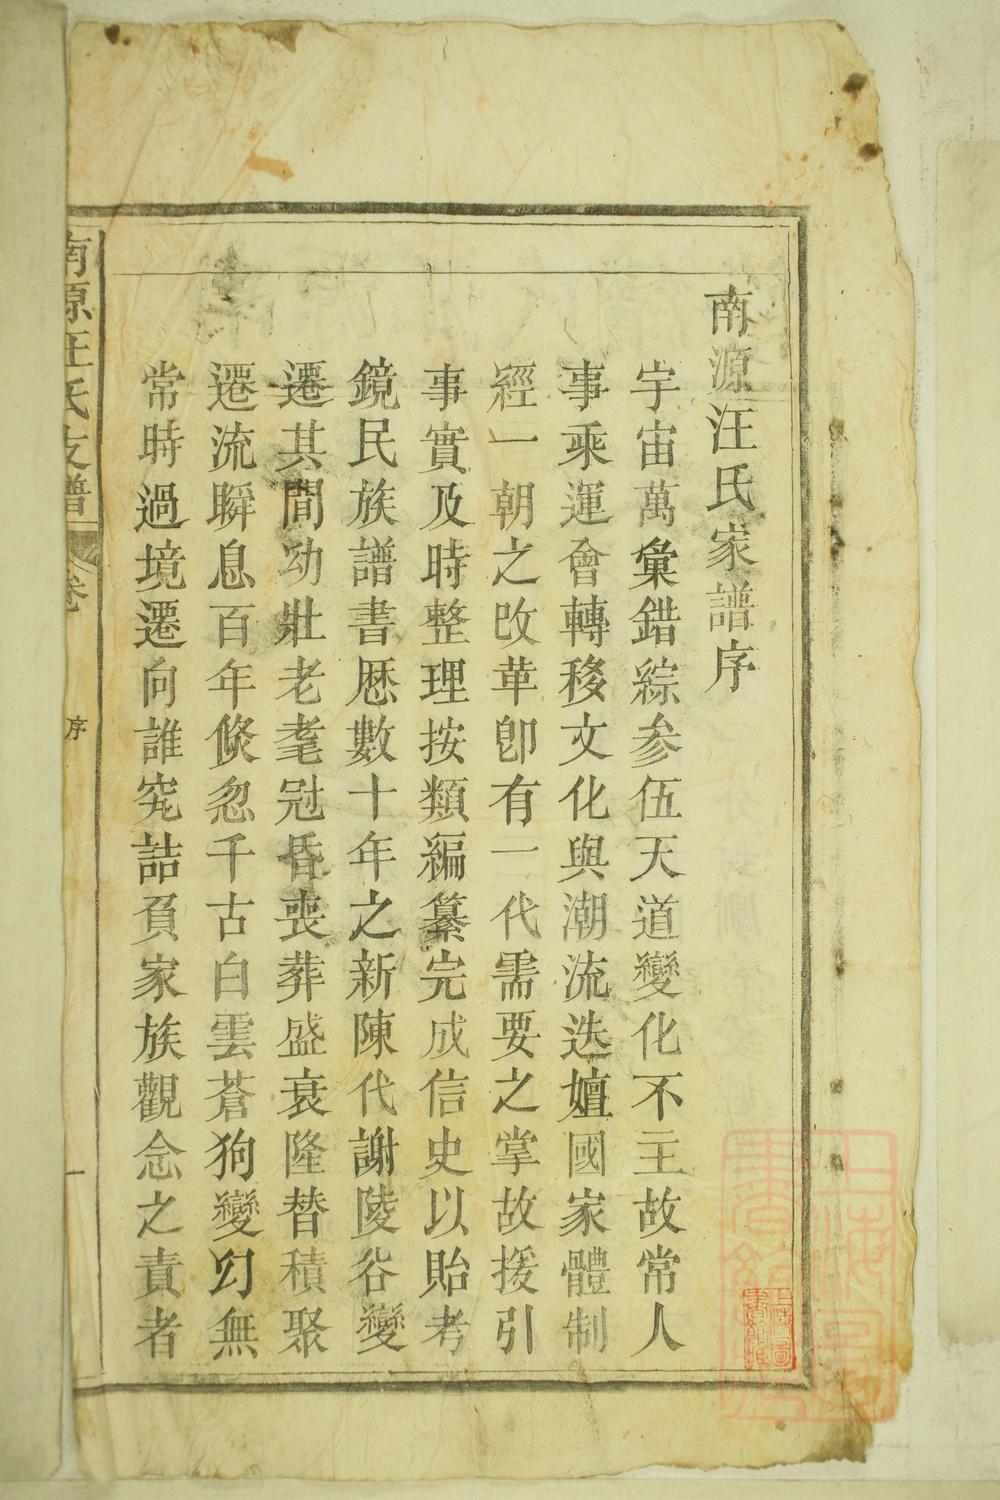 南源汪氏家譜序
宇宙萬彙錯綜参伍天道變化不主故常人
事乘運會轉移文化與潮流迭嬗國家體制
經一朝之改革卽有一代需要之掌故援引
事實及時整理按類編纂完成信史以貽考
鏡民族譜書歷數十年之新陳代謝陵谷變
遷其間幼壯老耄冠昏喪葬盛衰隆替積聚
遷流瞬息百年倐忽千古白雲蒼狗變幻無
常時過境遷向誰究詰負家族觀念之責者
南源汪氏支譜 卷 序 一
上海圖書館藏